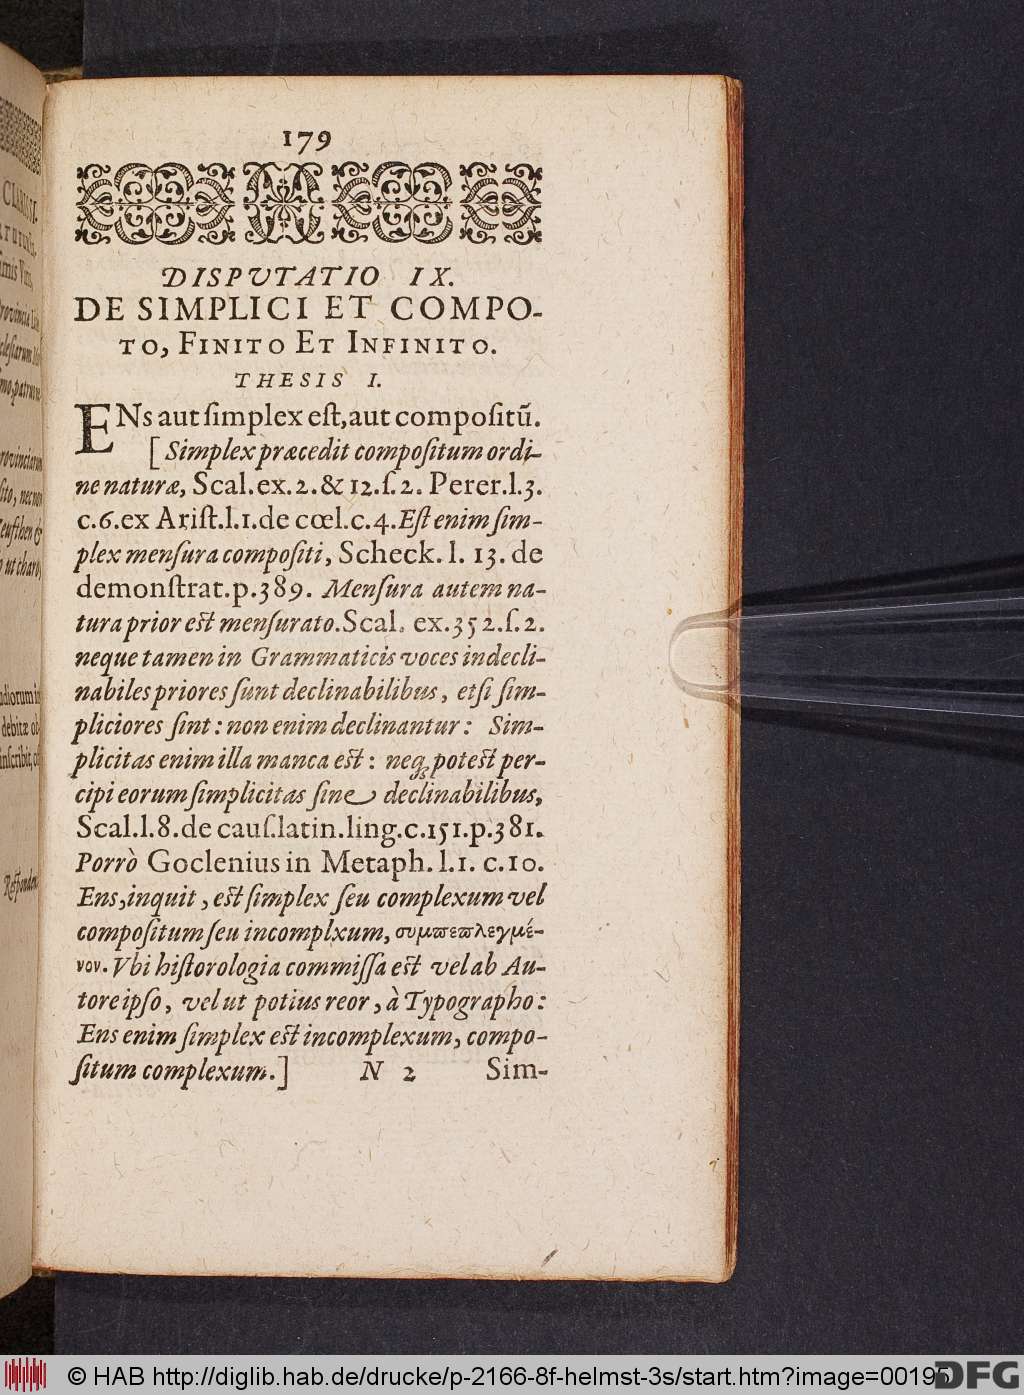 179
DISPVTATIO IX.
DE SIMPLICI ET COMPO-
TO, FINITO ET INFINITO.
THESIS I.
ENs aut ſimplex eſt, aut compoſitũ.
[Simplex præcedit compoſitum ordi-
ne naturæ, Scal. ex. 2. & 12. ſ. 2. Perer. l. 3.
c. 6. ex Ariſt. l. 1. de cœl. c. 4. Eſt enim ſim-
plex menſura compoſiti, Scheck. l. 13. de
demonſtrat. p. 389. Menſura autem na-
tura prior eſt menſurato. Scal. ex. 352. ſ. 2.
neque tamen in Grammaticis voces indecli-
nabiles priores ſunt declinabilibus, etſi ſim-
pliciores ſint: non enim declinantur: Sim-
plicitas enim illa manca eſt: neq; poteſt per-
cipi eorum ſimplicitas ſine declinabilibus,
Scal. l. 8. de cauſ. latin. ling. c. 151. p. 381.
Porrò Goclenius in Metaph. l. 1. c. 10.
Ens, inquit, eſt ſimplex ſeu complexum vel
compoſitum ſeu incomplxum, συμπεπλεγμέ-
νον. Vbi hiſtorologia commiſſa eſt vel ab Au-
tore ipſo, vel ut potius reor, à Typographo:
Ens enim ſimplex eſt incomplexum, compo-
ſitum complexum.] N 2 Sim-
CLARISSI-
provinciarum
ut charo,
debitæ ob-
inſcribit,
© HAB http://diglib.hab.de/drucke/p-2166-8f-helmst-3s/start.htm?image=00195
DFG